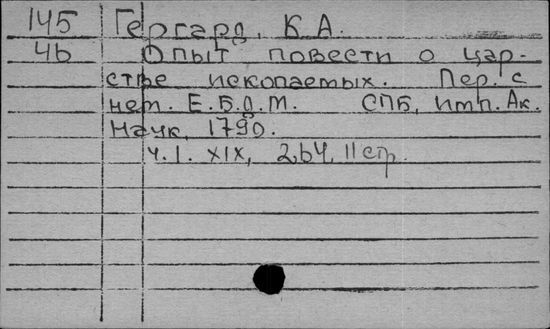 145 Гергард, К А.
4b Опыт повести о цар-
стве ископаемых. Пер. с
нем. Е.Б.д.М. СПБ, Имп. Ак.
Наук, 1790.
ч.I. XIX, 264, II стр.